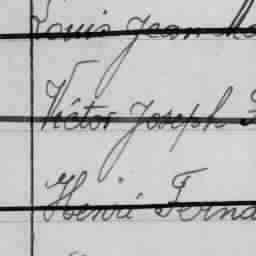 Louis Jean
Victor Joseph
Henri Ferna